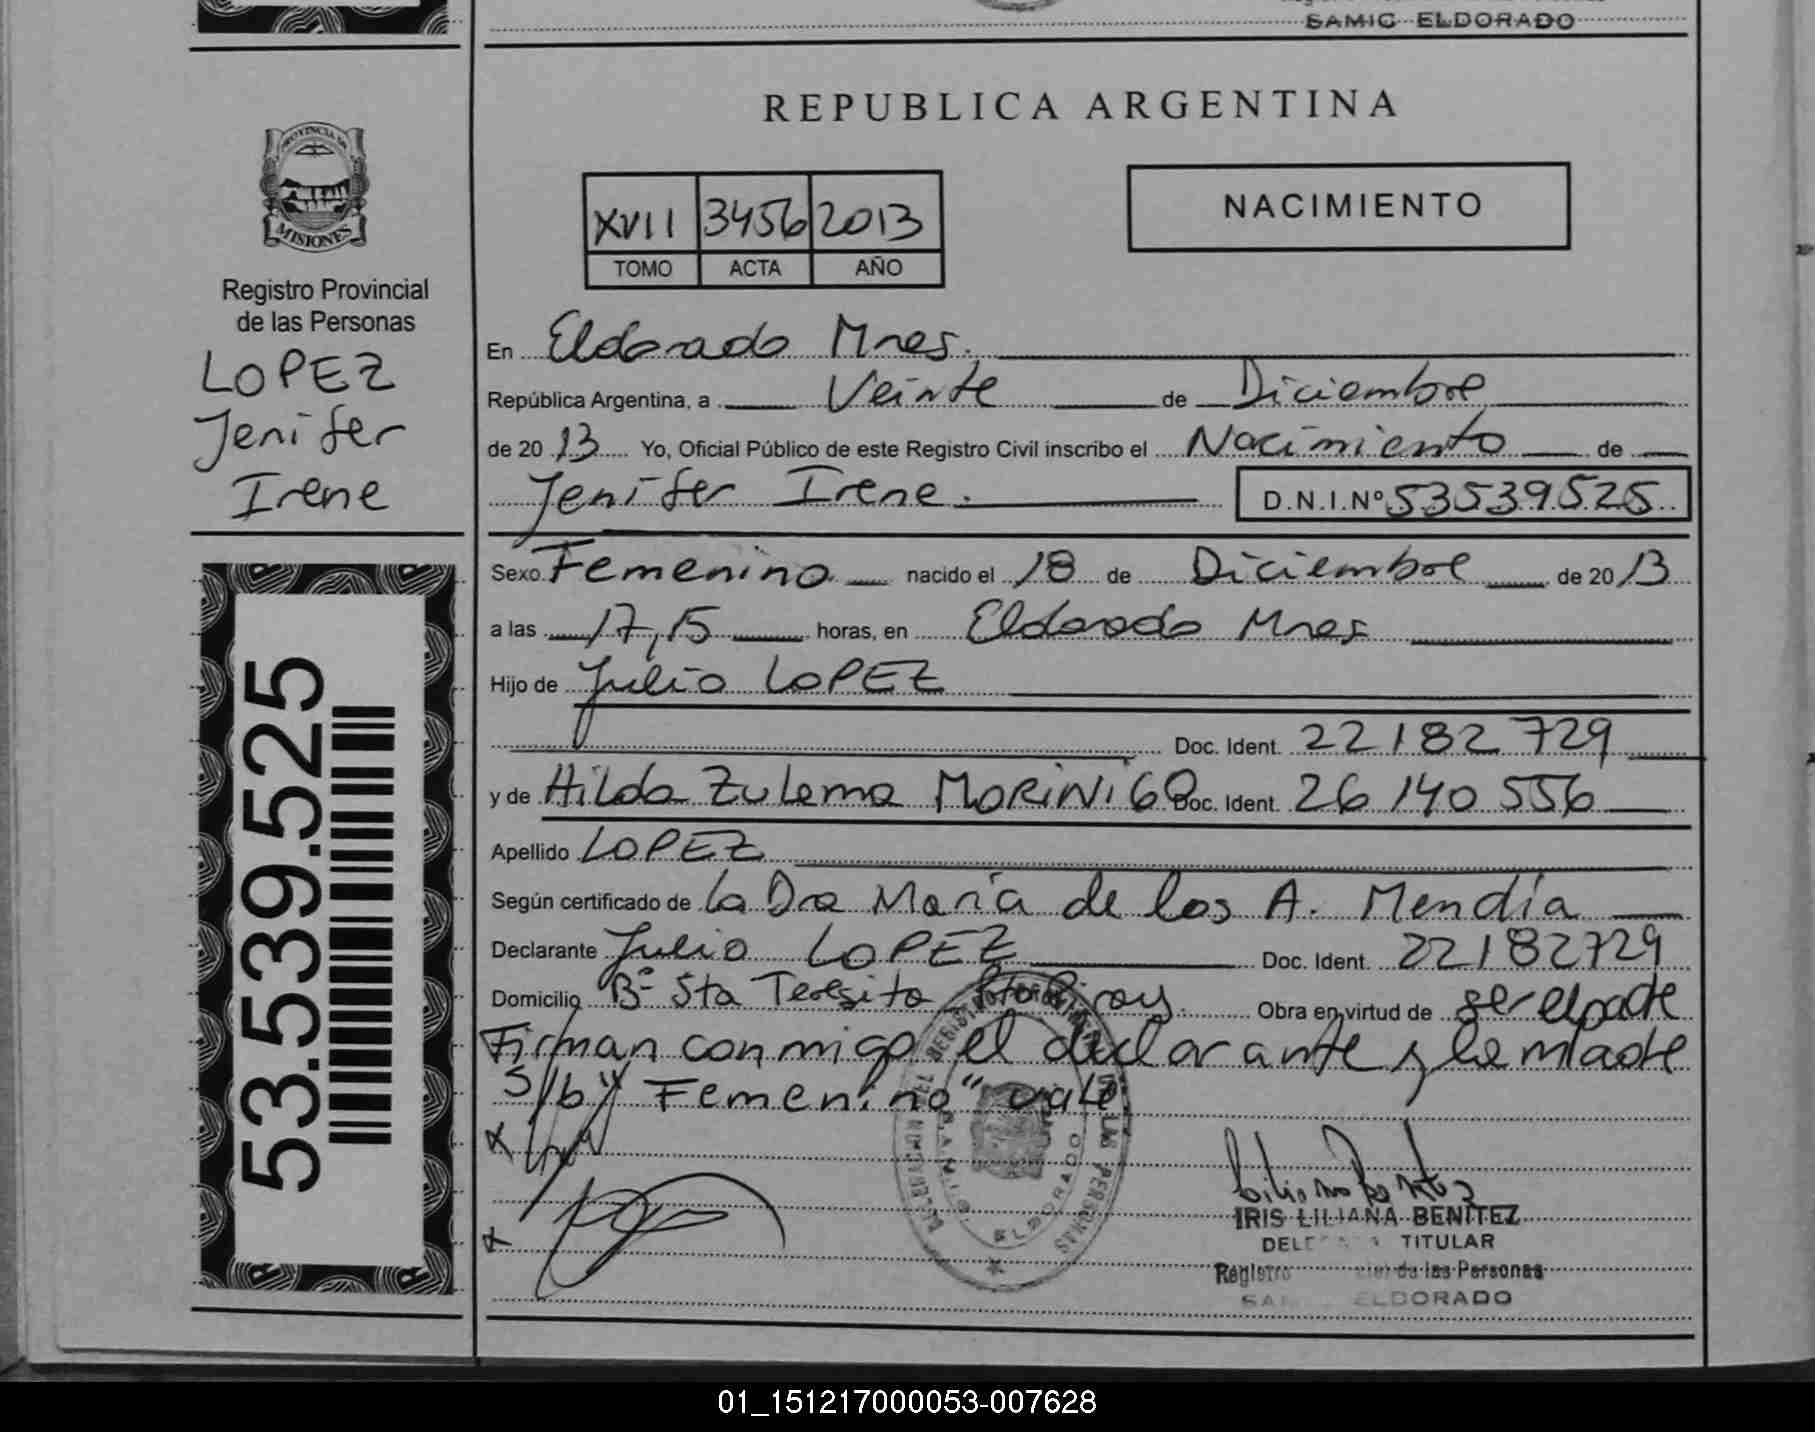 SAMIC ELDORADO
PROVINCIA DE
MISIONES
Registro Provincial
de las Personas
LOPEZ
Jenifer
Irene
53.539.525
REPUBLICA ARGENTINA
XVII 3456 2013
TOMO ACTA AÑO
NACIMIENTO
En Eldorado Mnes.
República Argentina, a Veinte de Diciembre
de 2013 Yo, Oficial Público de este Registro Civil inscribo el Nacimiento de
Jenifer Irene. D.N.I.Nº 53539525
Sexo Femenino nacido el 18 de Diciembre de 2013
a las 17,15 horas, en Eldorado Mnes
Hijo de Julio LOPEZ
Doc. Ident. 22182729
y de Hilda Zulema MORINIGO Doc. Ident. 26140556
Apellido LOPEZ
Según certificado de La Dra María de los A. Mendía
Declarante Julio LOPEZ Doc. Ident. 22182729
Domicilio Bº Sta Teresita Pto Piray. Obra en virtud de ser el padre
Firman conmigo el declarante y la madre
S/b "Femenino" vale
ELDORADO
IRIS LILIANA BENITEZ
TITULAR
Registro de las Personas
ELDORADO
01_151217000053-007628